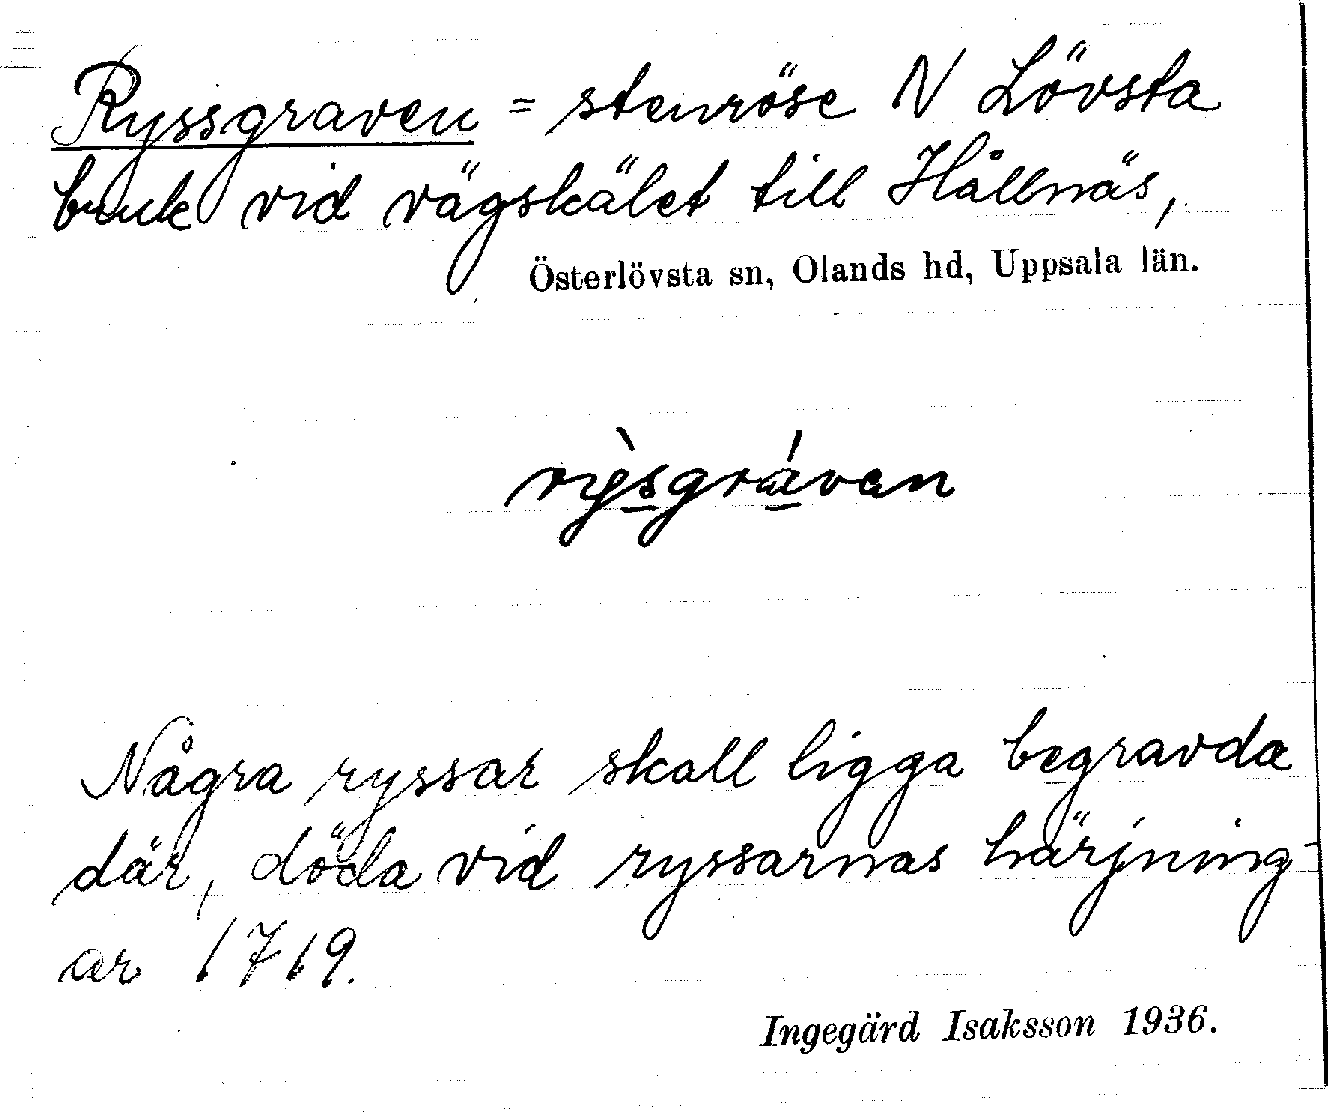 Ryssgraven = stenröse N Lövsta
bruk vid vägskälet till Hållnäs,
Österlövsta sn, Olands hd, Uppsala län.
rỳsgráven
Några ryssar skall ligga begravda
där, döda vid ryssarnas härjning-
ar 1719.
Ingegärd Isaksson 1936.